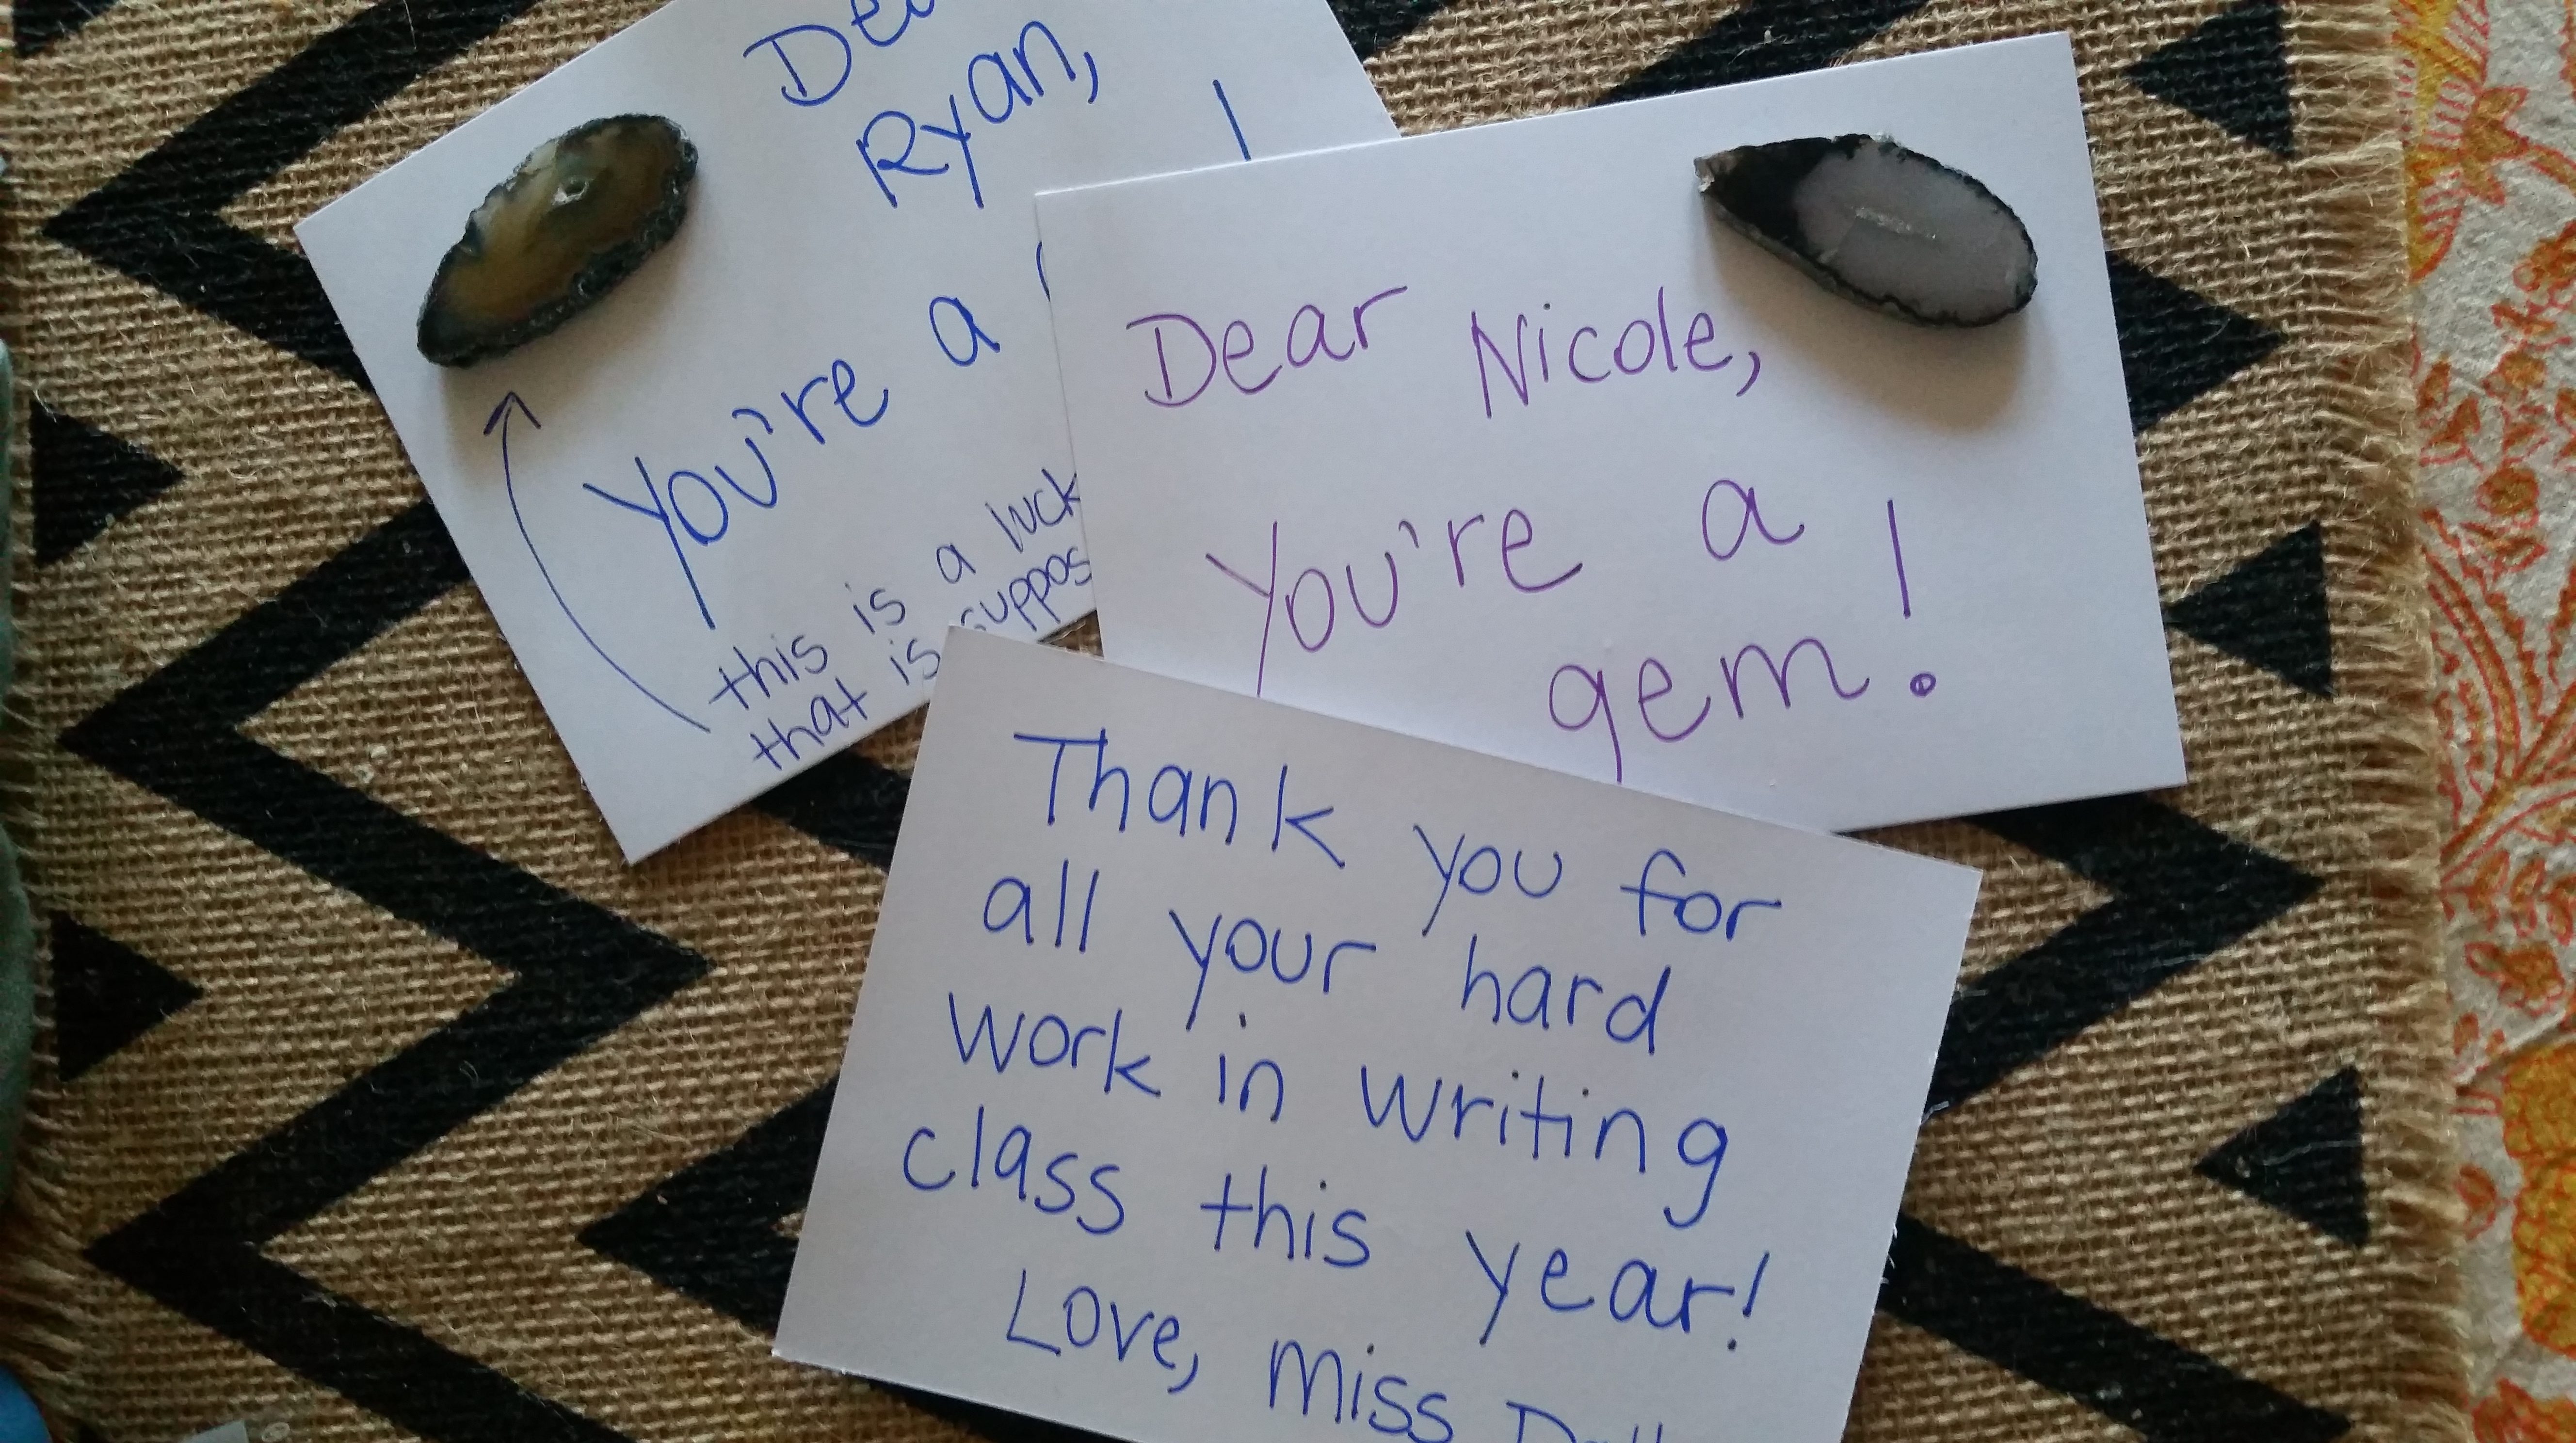 Ryan,
You're a
this is a
that is
Dear Nicole,
You're a
gem!
Thank you for
all your hard
work in writing
class this year!
Love, Miss